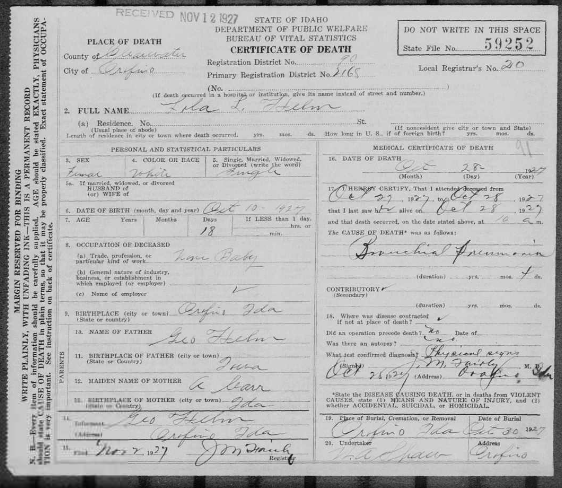 RECEIVED NOV 12 1927
STATE OF IDAHO
DEPARTMENT OF PUBLIC WELFARE
BUREAU OF VITAL STATISTICS
CERTIFICATE OF DEATH
DO NOT WRITE IN THIS SPACE
State File No. 59252
PLACE OF DEATH
County of Clearwater
City of Orofino
Registration District No. 90
Primary Registration District No.
Local Registrar's No. 20
(No.
(If death occurred in a hospital or institution, give its name instead of street and number.)
2. FULL NAME Lola L. Helm
(a) Residence. No. St.
(Usual place of abode) (If nonresident give city or town and State)
Length of residence in city or town where death occurred. yrs. mos. ds. How long in U. S., if of foreign birth? yrs. mos. ds.
PERSONAL AND STATISTICAL PARTICULARS
3. SEX
4. COLOR OR RACE White
5. Single, Married, Widowed, or Divorced (write the word) Single
5a. If married, widowed, or divorced
HUSBAND of
(or) WIFE of
6. DATE OF BIRTH (month, day, and year) Oct 10 - 1927
7. AGE Years Months Days If LESS than 1 day, hrs. or min.
18
8. OCCUPATION OF DECEASED
(a) Trade, profession, or particular kind of work Baby
(b) General nature of industry, business, or establishment in which employed (or employer)
(c) Name of employer
9. BIRTHPLACE (city or town) Orofino Ida
(State or country)
PARENTS
10. NAME OF FATHER Geo Helm
11. BIRTHPLACE OF FATHER (city or town)
(State or Country) Iowa
12. MAIDEN NAME OF MOTHER A Carr
13. BIRTHPLACE OF MOTHER (city or town)
(State or Country) Ida
14. Informant Geo Helm
(Address) Orofino Ida
15. Filed Nov 2 1927 Registrar
MEDICAL CERTIFICATE OF DEATH
91
16. DATE OF DEATH Oct 28 1927
(Month) (Day) (Year)
17. I HEREBY CERTIFY, That I attended deceased from
Oct 27 1927 to Oct 28 1927
that I last saw alive on Oct 28 1927
and that death occurred, on the date stated above, at a m.
The CAUSE OF DEATH* was as follows:
Bronchial Pneumonia
(duration) yrs. mos. 4 ds.
CONTRIBUTORY
(Secondary)
(duration) yrs. mos. ds.
18. Where was disease contracted
if not at place of death?
Did an operation precede death? no Date of
Was there an autopsy? no
What test confirmed diagnosis? Physical signs
(Signed) J. M. Fairly M. D.
Oct 28 1927 (Address) Orofino Ida
*State the DISEASE CAUSING DEATH, or in deaths from VIOLENT CAUSES, state (1) MEANS AND NATURE OF INJURY, and (2) whether ACCIDENTAL, SUICIDAL, or HOMICIDAL.
19. Place of Burial, Cremation, or Removal Date of Burial
Orofino Ida Oct 30 1927
20. Undertaker Address
Orofino
MARGIN RESERVED FOR BINDING
WRITE PLAINLY, WITH UNFADING INK—THIS IS A PERMANENT RECORD
N. B.—Every item of information should be carefully supplied. AGE should be stated EXACTLY, PHYSICIANS should state CAUSE OF DEATH in plain terms, so that it may be properly classified. Exact statement of OCCUPATION is very important. See instruction on back of certificate.